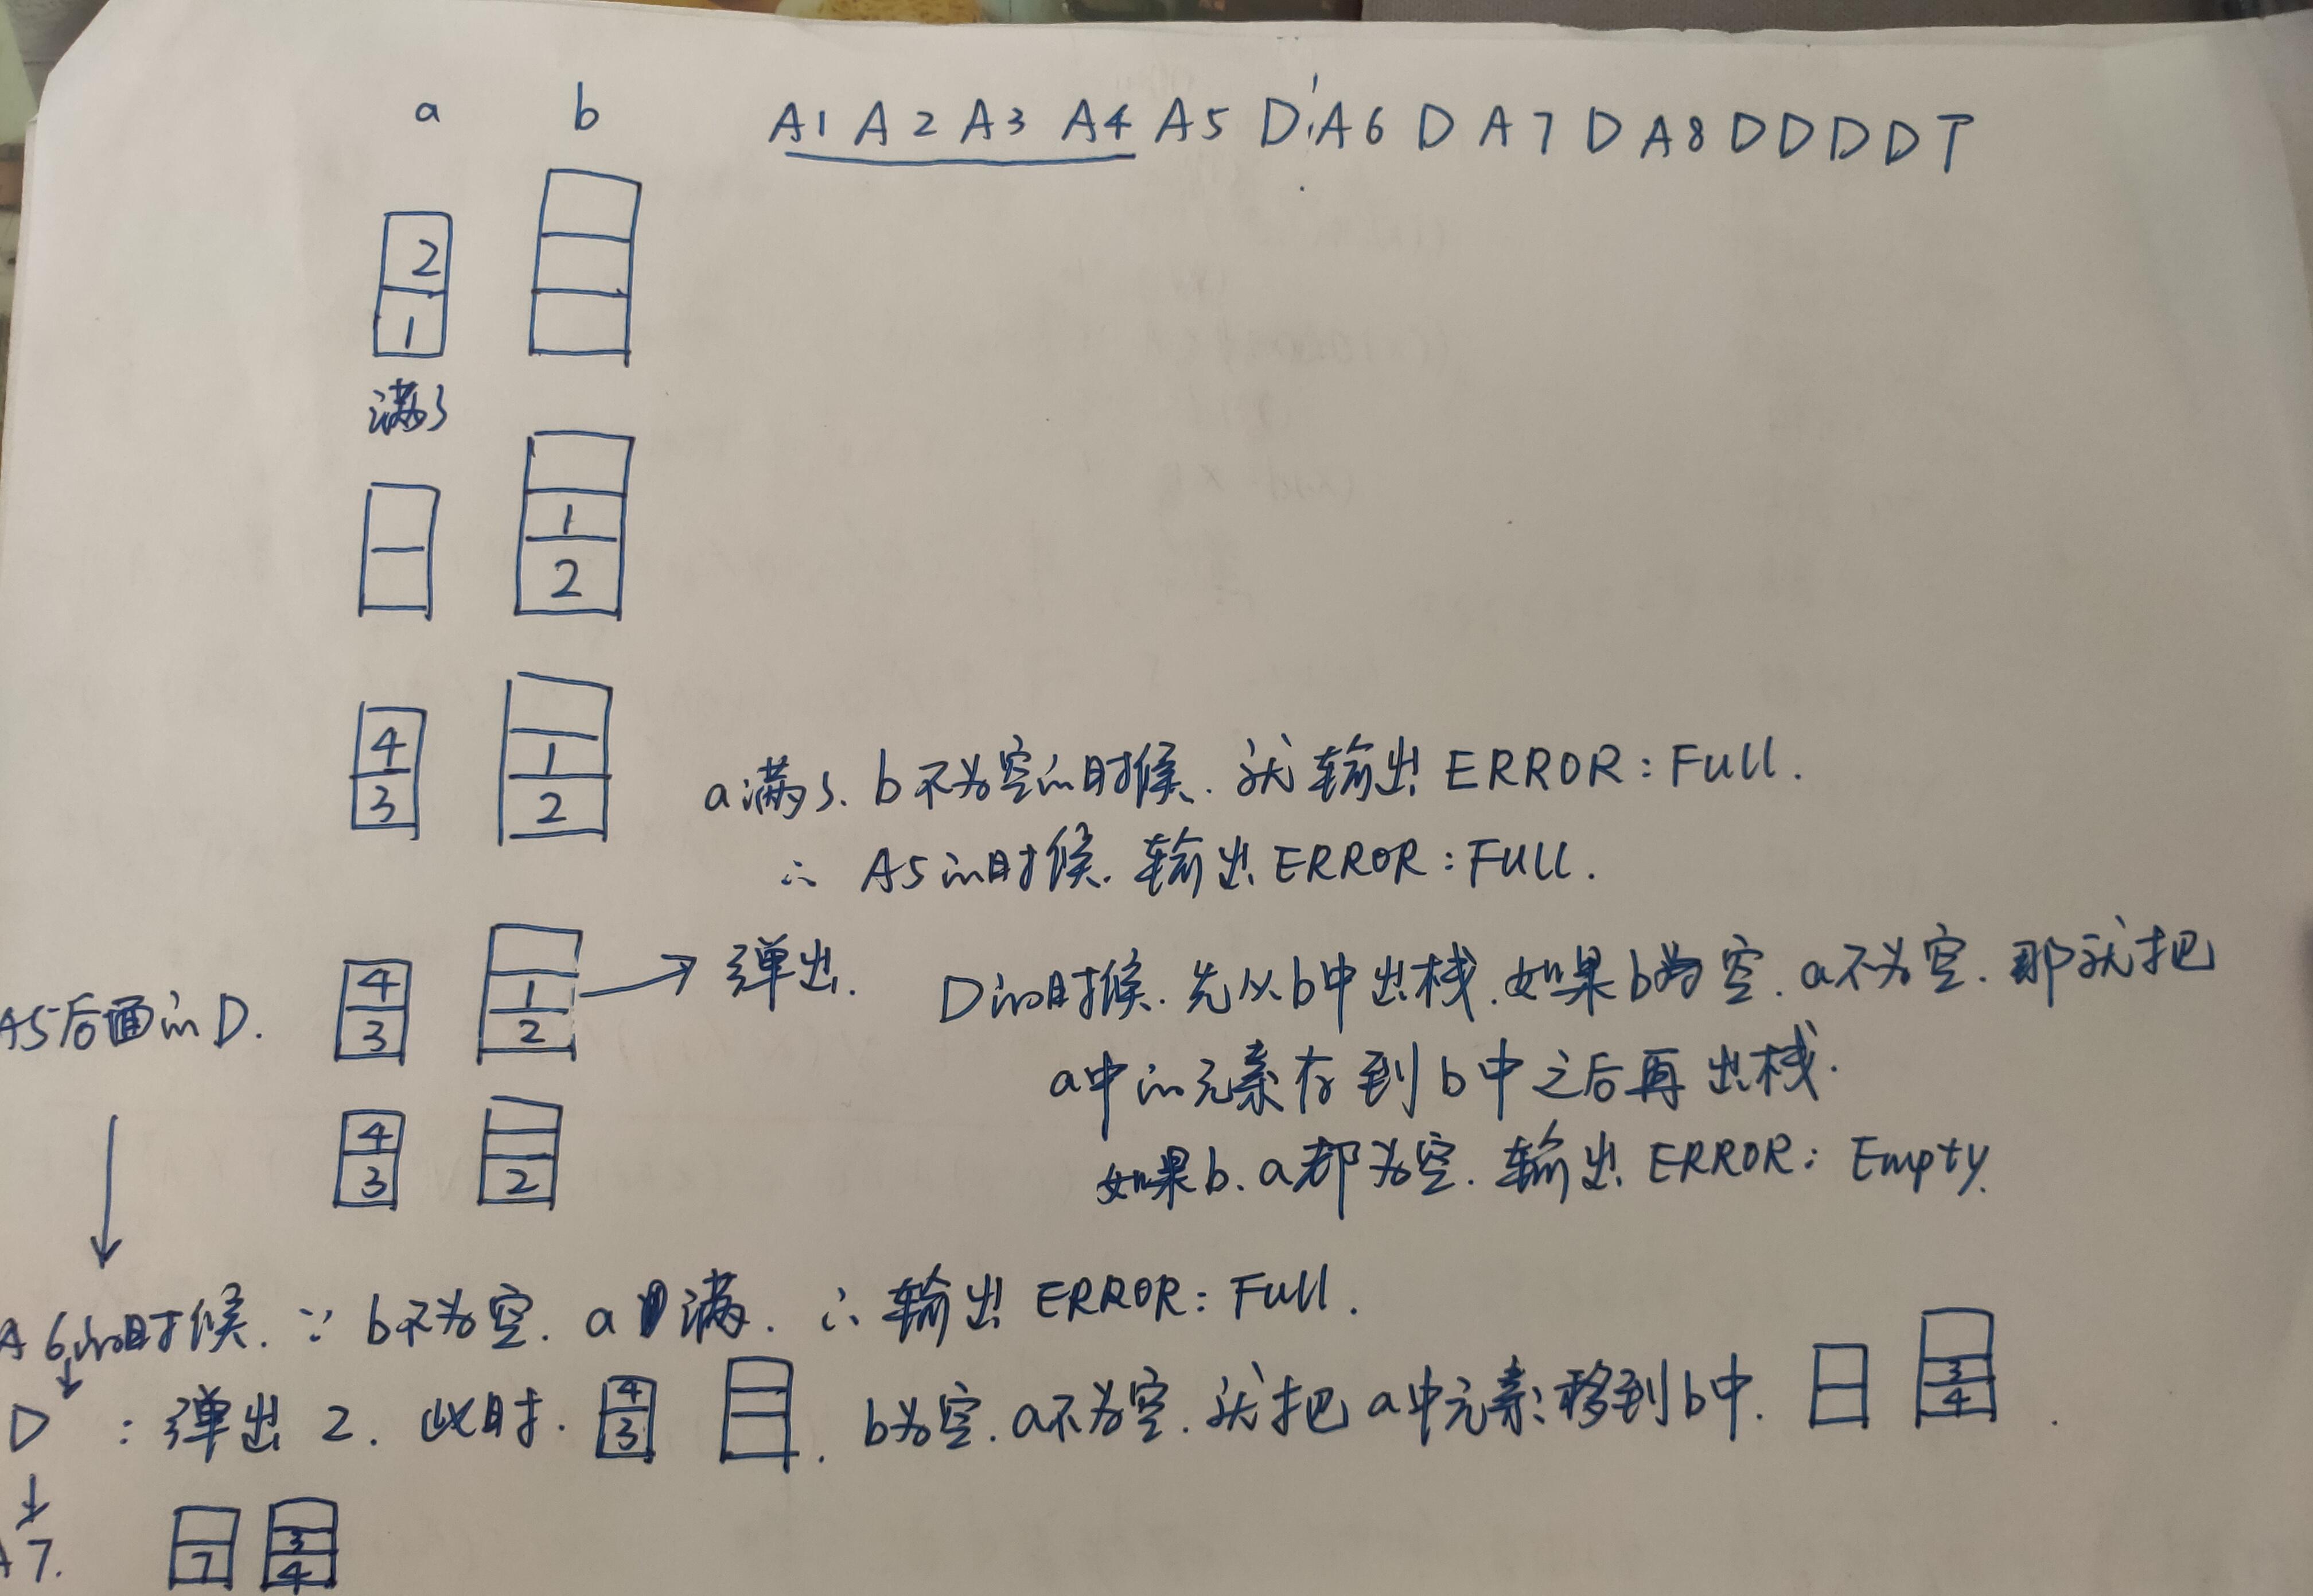 a b A1 A2 A3 A4 A5 D A6 D A7 D A8 D D D D T
2
1
满了
1
2
4 1
3 2
a满了、b不为空的时候、就输出ERROR:Full.
∴ A5的时候.输出ERROR:Full.
A5后面的D. 4 1 → 弹出.
3 2
D的时候.先从b中出栈.如果b为空.a不为空.那就把
a中的元素存到b中之后再出栈.
4
3 2
如果b、a都为空.输出ERROR: Empty.
A6的时候.∵ b不为空.a满.∴输出ERROR: Full.
D :弹出2.此时. 4 3 . b为空.a不为空.就把a中元素移到b中. 3 4 .
A7. 7 3 4